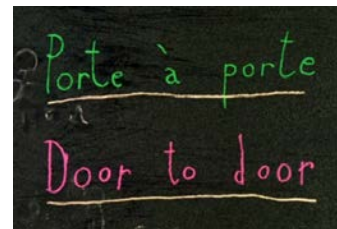 Porte à porte
Door to door